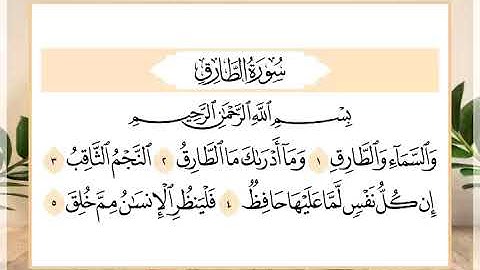 سُورَةُ الطَّارِقِ
بِسْمِ ٱللَّهِ ٱلرَّحْمَٰنِ ٱلرَّحِيمِ
وَٱلسَّمَآءِ وَٱلطَّارِقِ ١ وَمَآ أَدْرَىٰكَ مَا ٱلطَّارِقُ ٢ ٱلنَّجْمُ ٱلثَّاقِبُ ٣
إِن كُلُّ نَفْسٍ لَّمَّا عَلَيْهَا حَافِظٌ ٤ فَلْيَنظُرِ ٱلْإِنسَٰنُ مِمَّ خُلِقَ ٥